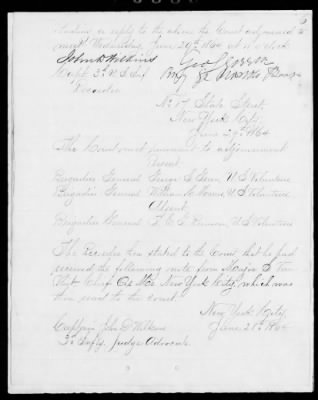 in reply to the above the Court adjourned to
meet Wednesday June 29th 1864 at 11 o'clock
John D Wilkins
Capt. 3d U.S. Inf
Recorder
No 17 State Street
New York City
June 29th 1864
The Court met pursuant to adjournment
Present
Brigadier General U.S. Volunteers
Brigadier General William U.S. Volunteers
Absent
Brigadier General T. E. G. Ransom U.S. Volunteers
The Recorder then stated to the Court that he had
received the following note from Major S Van
Vliet Chief Q M New York City, which was
then read to the Court.
New York City
June 28th 1864
Captain John D Wilkins
3d Infty. Judge Advocate